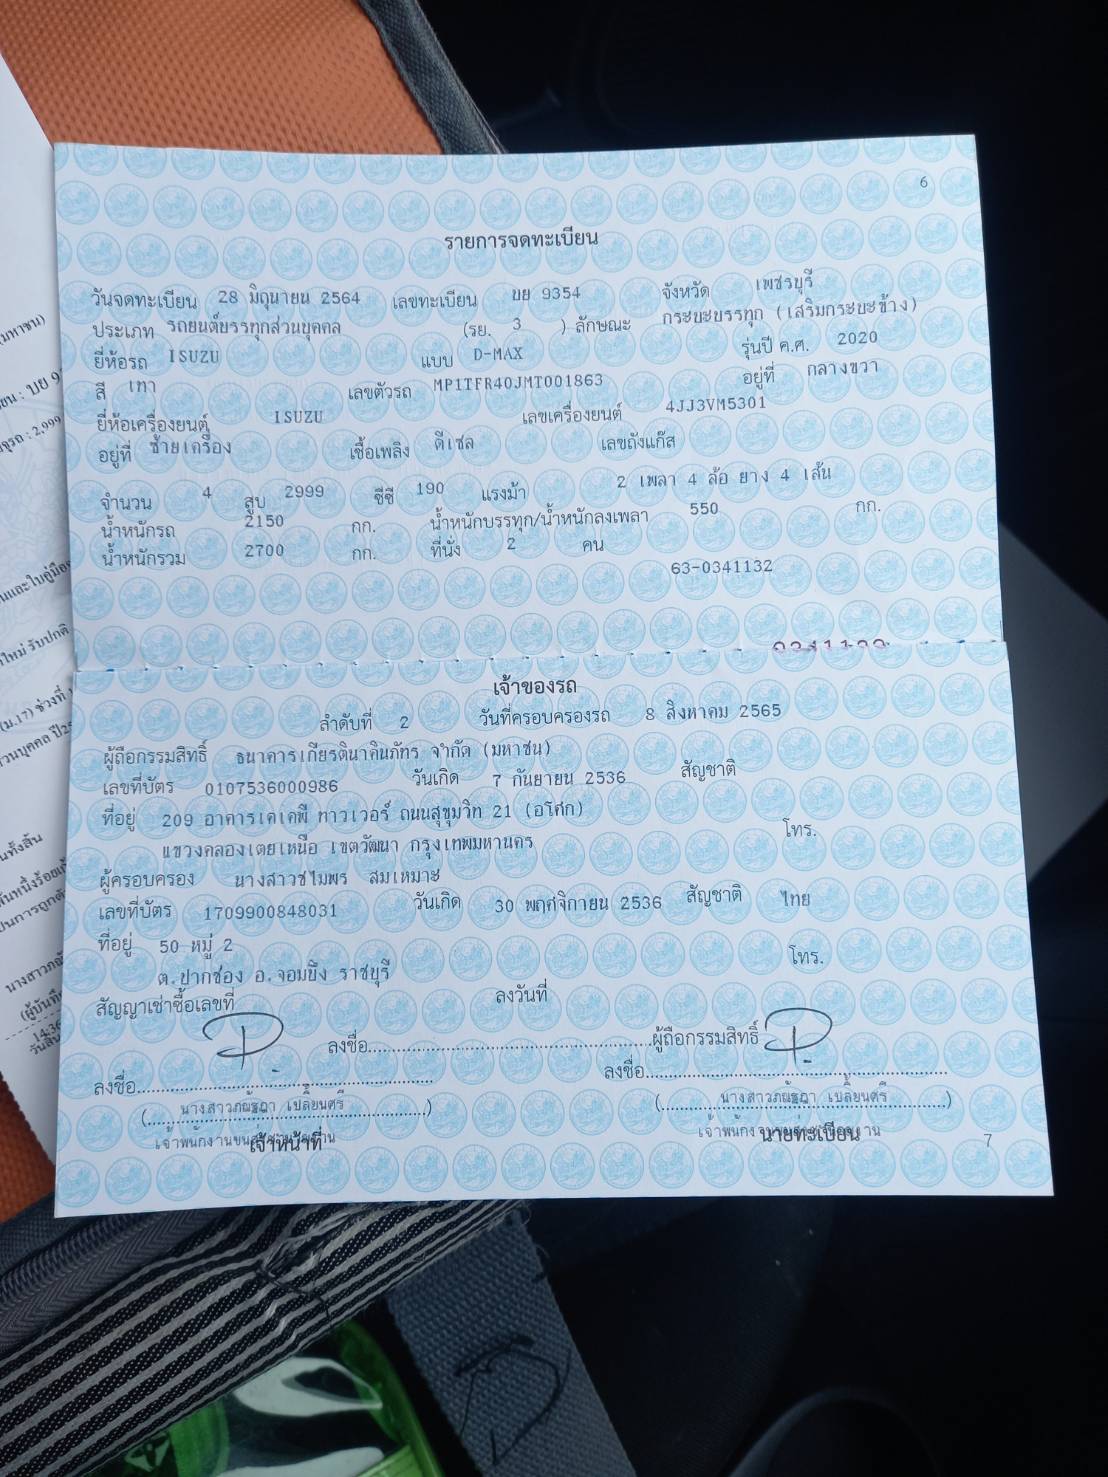 6
รายการจดทะเบียน
วันจดทะเบียน 28 มิถุนายน 2564 เลขทะเบียน บย 9354 จังหวัด เพชรบุรี
ประเภท รถยนต์บรรทุกส่วนบุคคล (รย. 3 ) ลักษณะ กระบะบรรทุก (เสริมกระบะข้าง)
ยี่ห้อรถ ISUZU แบบ D-MAX รุ่นปี ค.ศ. 2020
สี เทา เลขตัวรถ MP1TFR40JMT001863 อยู่ที่ กลางขวา
ยี่ห้อเครื่องยนต์ ISUZU เลขเครื่องยนต์ 4JJ3VM5301
อยู่ที่ ซ้ายเครื่อง เชื้อเพลิง ดีเซล เลขถังแก๊ส
จำนวน 4 สูบ 2999 ซีซี 190 แรงม้า 2 เพลา 4 ล้อ ยาง 4 เส้น
น้ำหนักรถ 2150 กก. น้ำหนักบรรทุก/น้ำหนักลงเพลา 550 กก.
น้ำหนักรวม 2700 กก. ที่นั่ง 2 คน
63-0341132
เจ้าของรถ
ลำดับที่ 2 วันที่ครอบครองรถ 8 สิงหาคม 2565
ผู้ถือกรรมสิทธิ์ ธนาคารเกียรตินาคินภัทร จำกัด (มหาชน)
เลขที่บัตร 0107536000986 วันเกิด 7 กันยายน 2536 สัญชาติ
ที่อยู่ 209 อาคารเคเคพี ทาวเวอร์ ถนนสุขุมวิท 21 (อโศก)
แขวงคลองเตยเหนือ เขตวัฒนา กรุงเทพมหานคร โทร.
ผู้ครอบครอง นางสาวชไมพร สมเหมาะ
เลขที่บัตร 1709900848031 วันเกิด 30 พฤศจิกายน 2536 สัญชาติ ไทย
ที่อยู่ 50 หมู่ 2
ต.ปากช่อง อ.จอมบึง ราชบุรี โทร.
สัญญาเช่าซื้อเลขที่ ลงวันที่
ลงชื่อ ผู้ถือกรรมสิทธิ์
ลงชื่อ ลงชื่อ
(นางสาวภณัฐฎา เปลี่ยนศรี) (นางสาวภณัฐฎา เปลี่ยนศรี)
เจ้าหน้าที่ นายทะเบียน
7